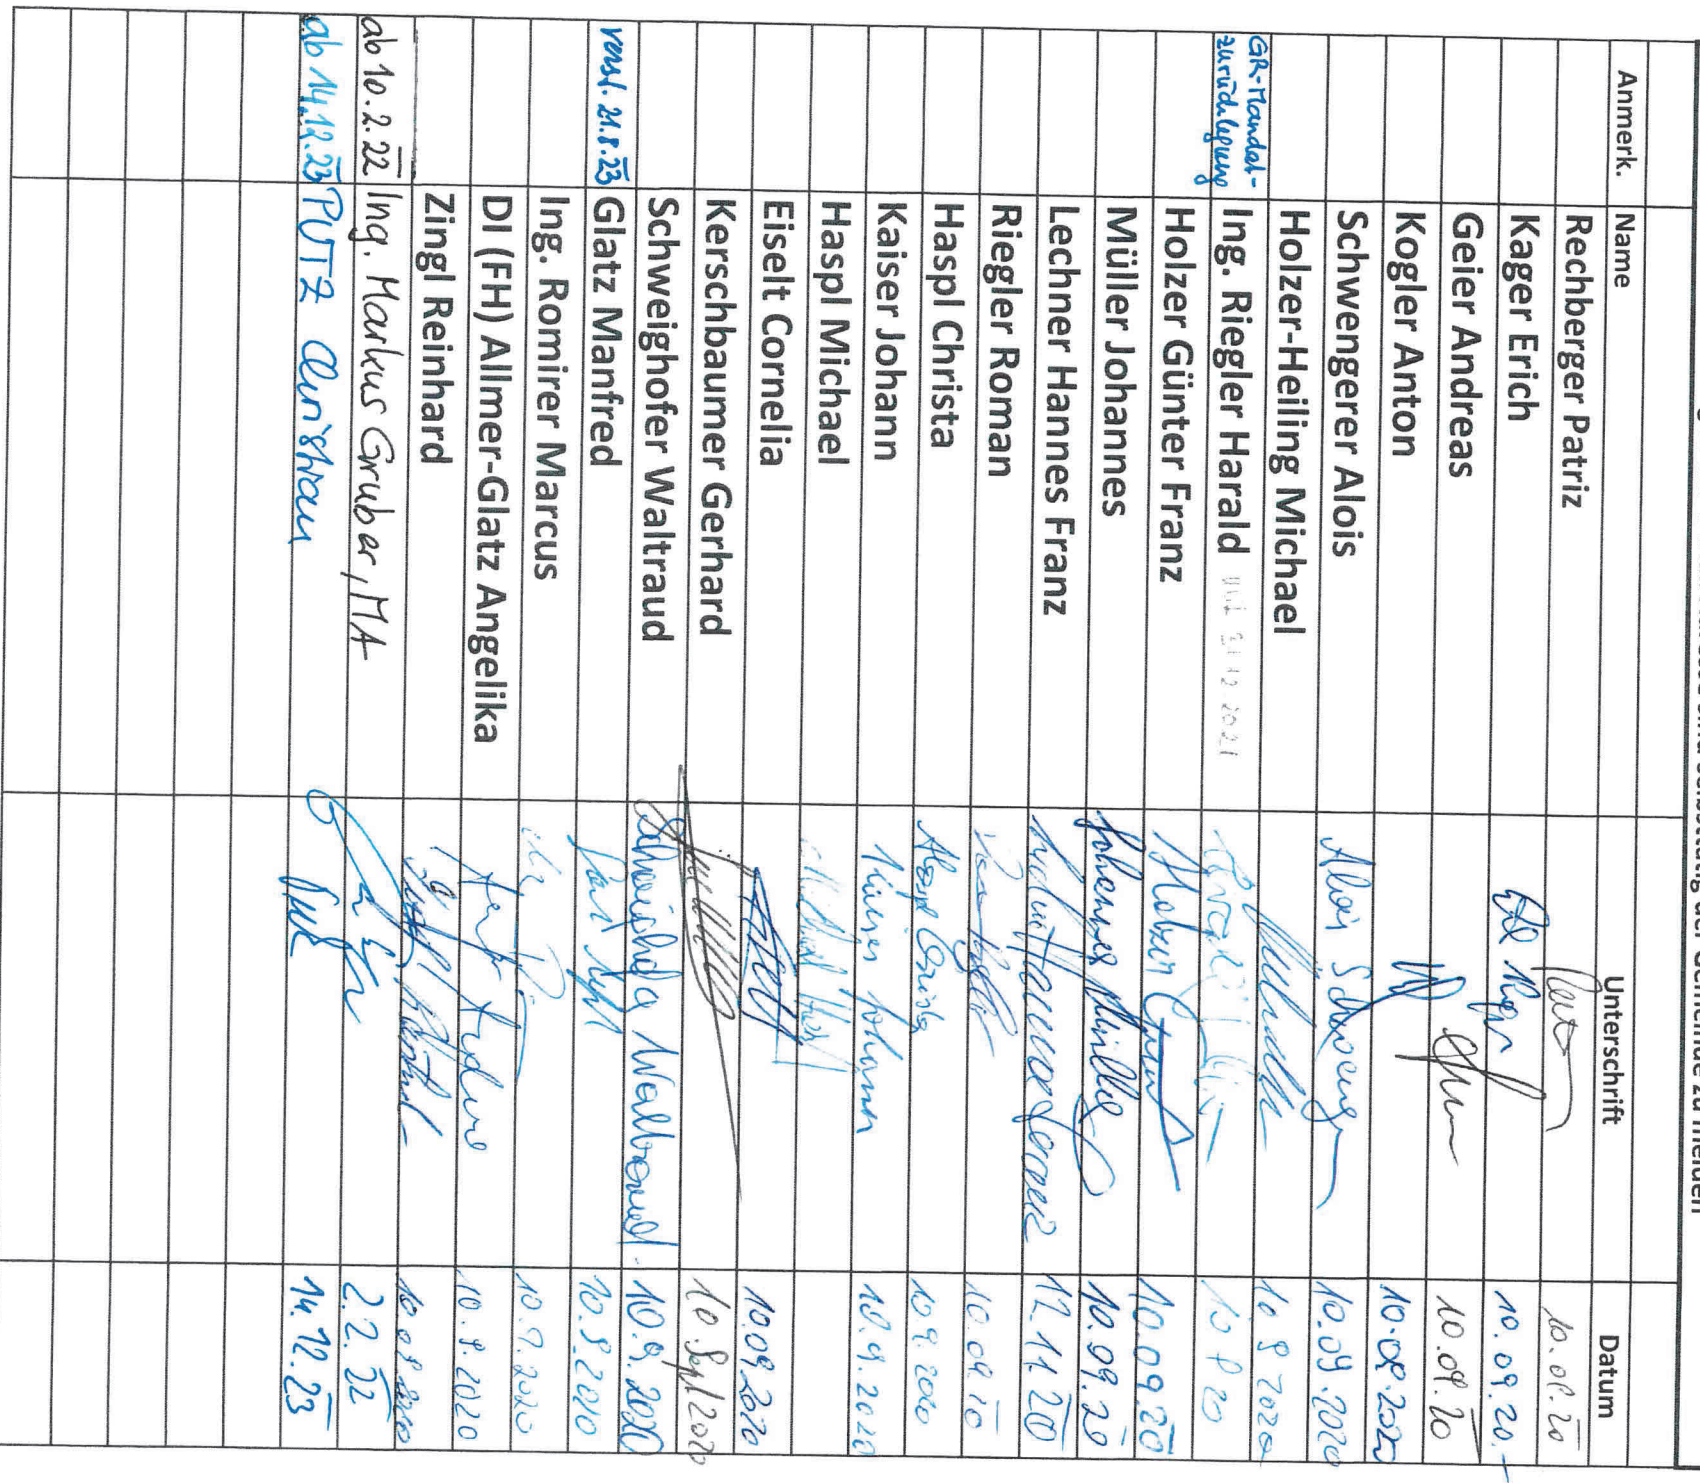 selbsttätig der Gemeinde zu melden
Anmerk. Name Unterschrift Datum
Rechberger Patriz 10.09.20
Kager Erich 10.09.20.-
Geier Andreas 10.09.20
Kogler Anton 10.09.2020
Schwengerer Alois Alois Schwenger 10.09.2020
Holzer-Heiling Michael 10 9 2020
GR-Mandat-
zurücklegung Ing. Riegler Harald 31.12.2021 10 9 20
Holzer Günter Franz Holzer 10.09.20
Müller Johannes Johannes Müller 10.09.20
Lechner Hannes Franz 12.11.20
Riegler Roman 10.09.20
Haspl Christa Haspl Christa 10 9. 2020
Kaiser Johann Kaiser Johann 10.9.2020
Haspl Michael Michael Haspl
Eiselt Cornelia 10.09.2020
Kerschbaumer Gerhard 10. Sept 2020
Schweighofer Waltraud Schweighofer Waltraud 10.9.2020
verst. 21.8.23 Glatz Manfred 10.9.2020
Ing. Romirer Marcus 10.9.2020
DI (FH) Allmer-Glatz Angelika 10.9.2020
Zingl Reinhard 10.09.2020
ab 10.2.22 Ing. Markus Gruber, MA 2.2.22
ab 14.12.23 PUTZ Christian 14.12.23